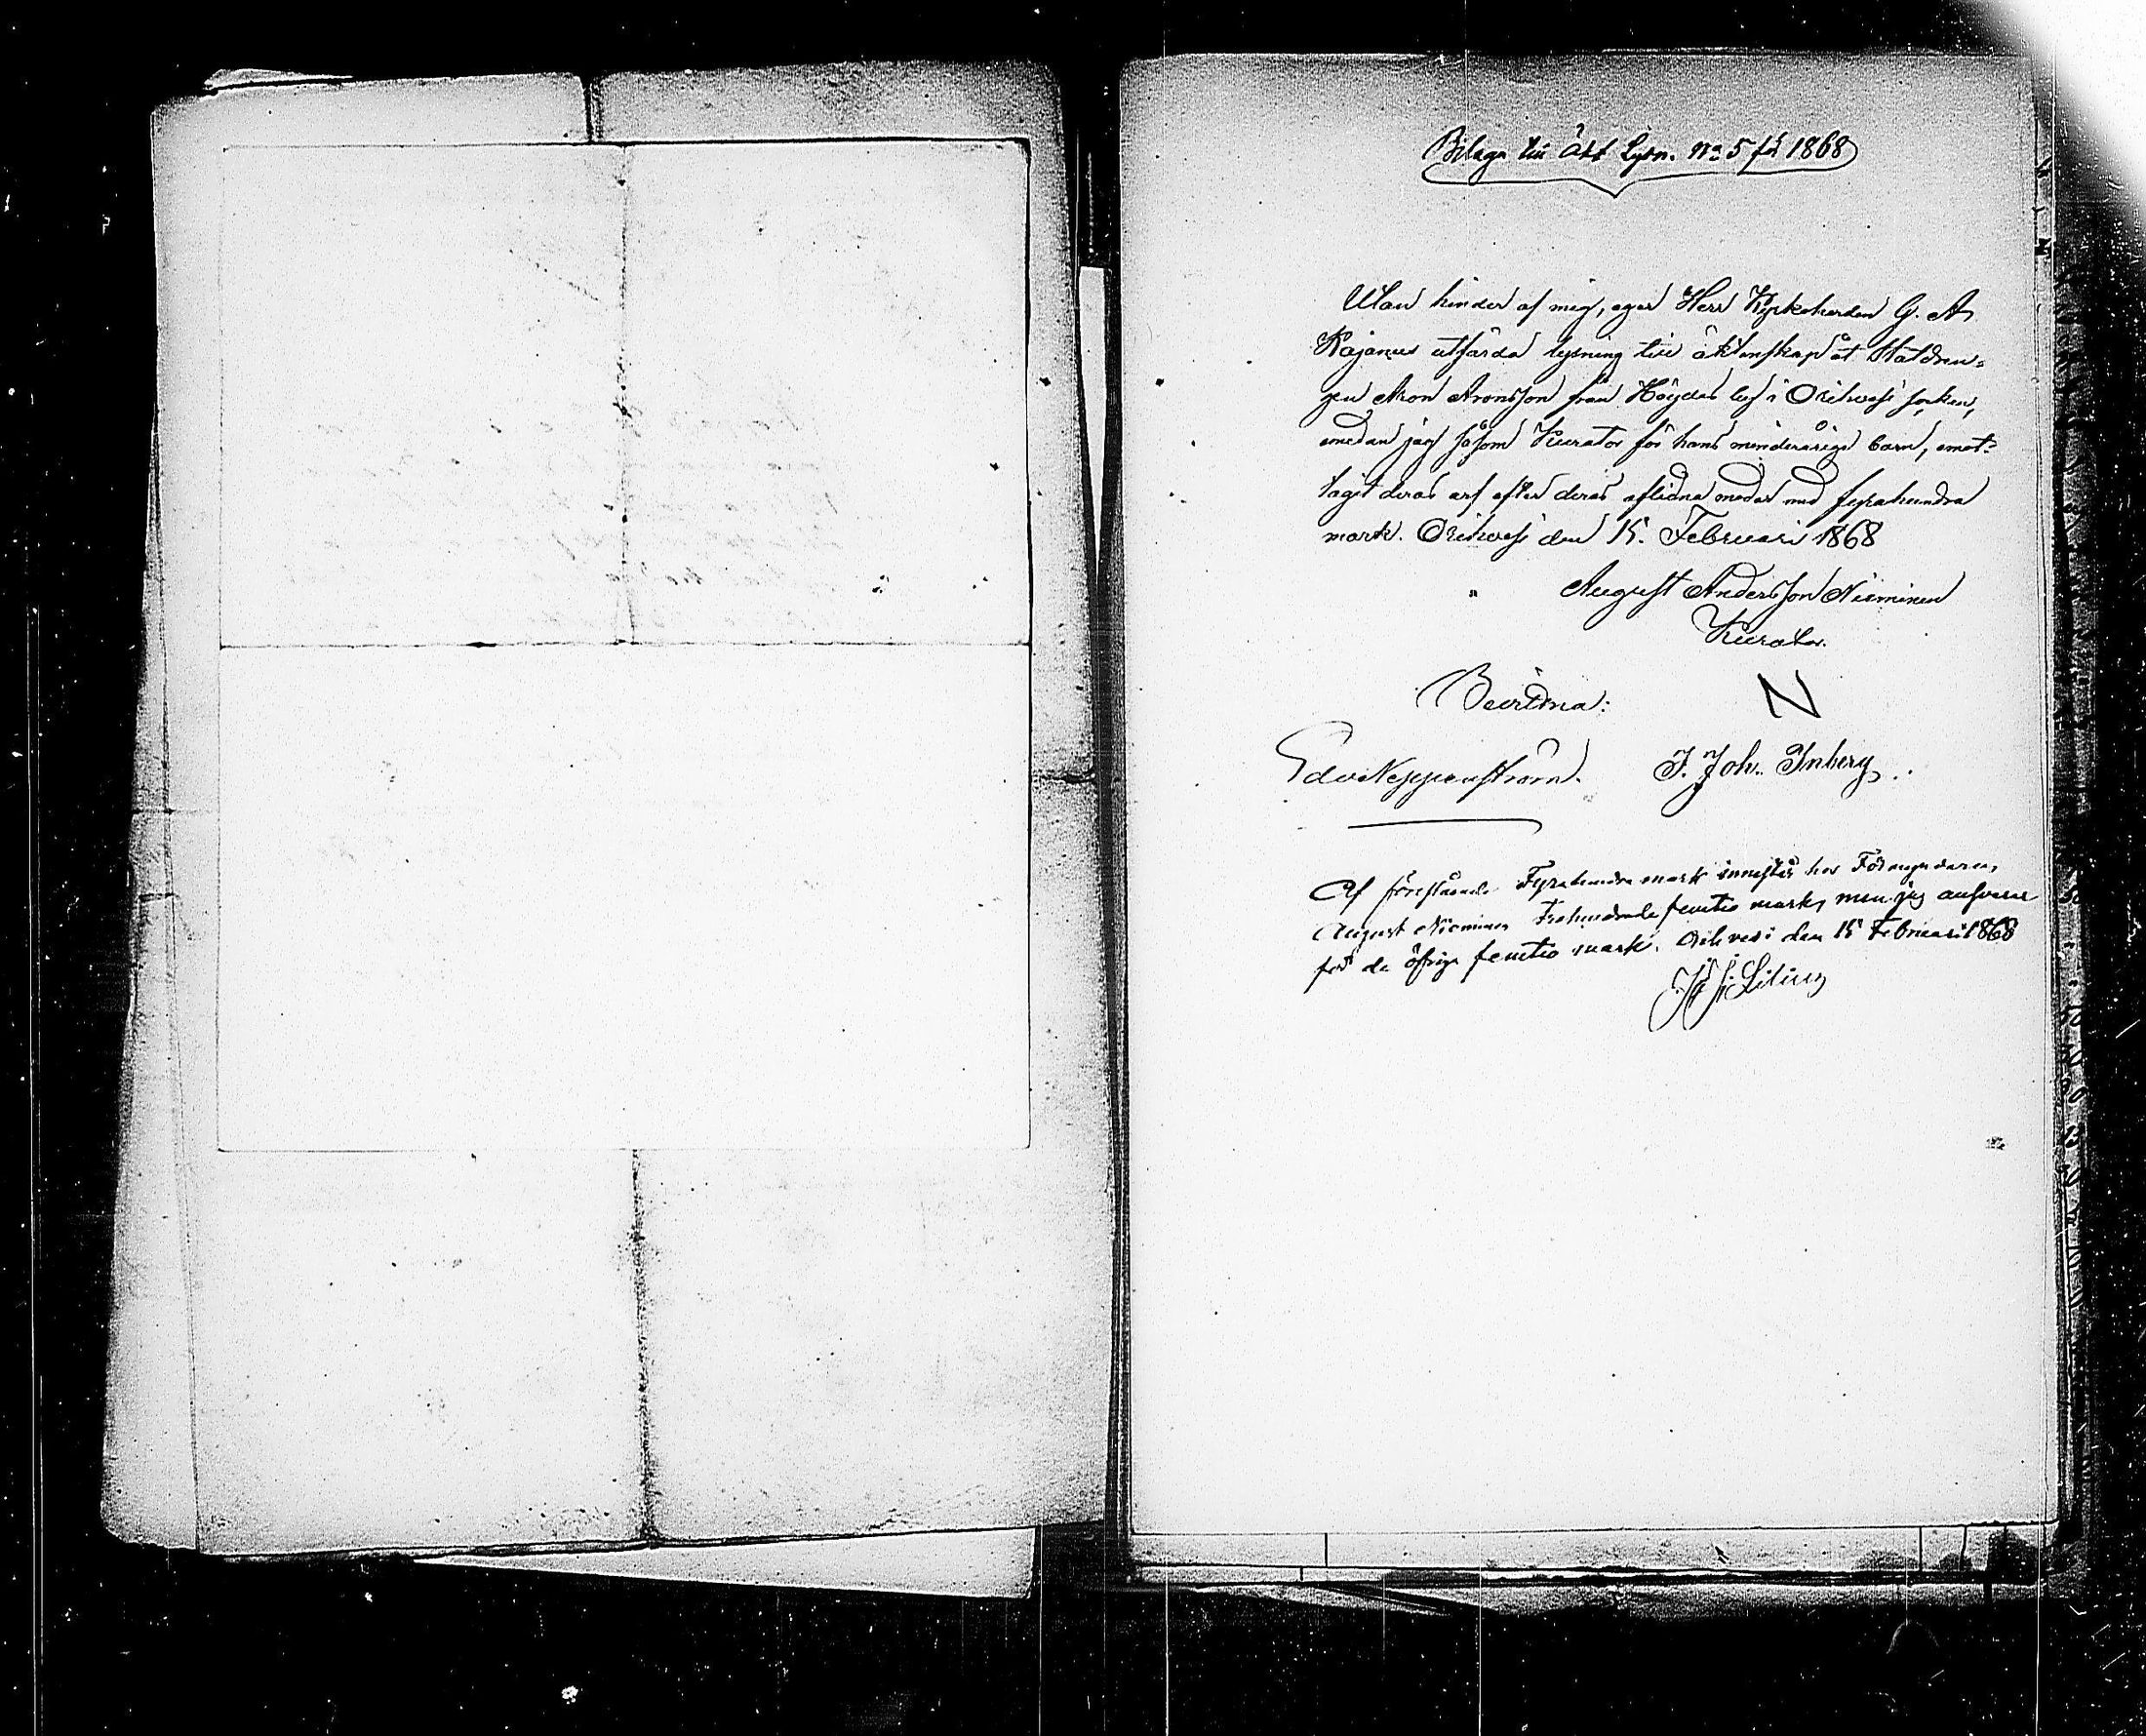 Bilaga till Äkt Lysn. No 5 för 1868
Utan hinder af mig, eger Herr Kyrkoherden G. A.
Kajanus utfärda lysning till äktenskap åt Statdren-
gen Aron Aronsson från Höydes by i Orihvesi socken,
emedan jag såsom Kurator för hans minderåriga barn, emot-
tagit deras arf efter deras aflidna moder med fyrahundra
mark. Orihvesi den 15. Februari 1868
August Andersson Nieminen
Kurator.
Bevittna: N
Edv Neppenström. J. Joh. Inberg
Af föreståande Fyrahundra mark innestår hos Förmyndaren,
August Nieminen Trehundrade femtio mark, men jag ansvarar
för de öfriga femtio mark. Orihvesi den 15 Februari 1868
Lilius